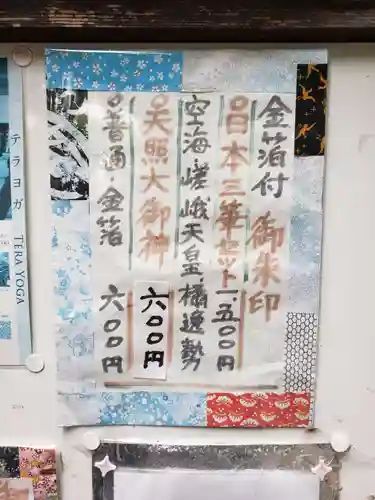 金箔付 御朱印
◎日本三筆セット一、五〇〇円
空海・嵯峨天皇・橘逸勢
◎天照大御神 六〇〇円
◎普通・金箔 六〇〇円
テラヨガ
TERA YOGA